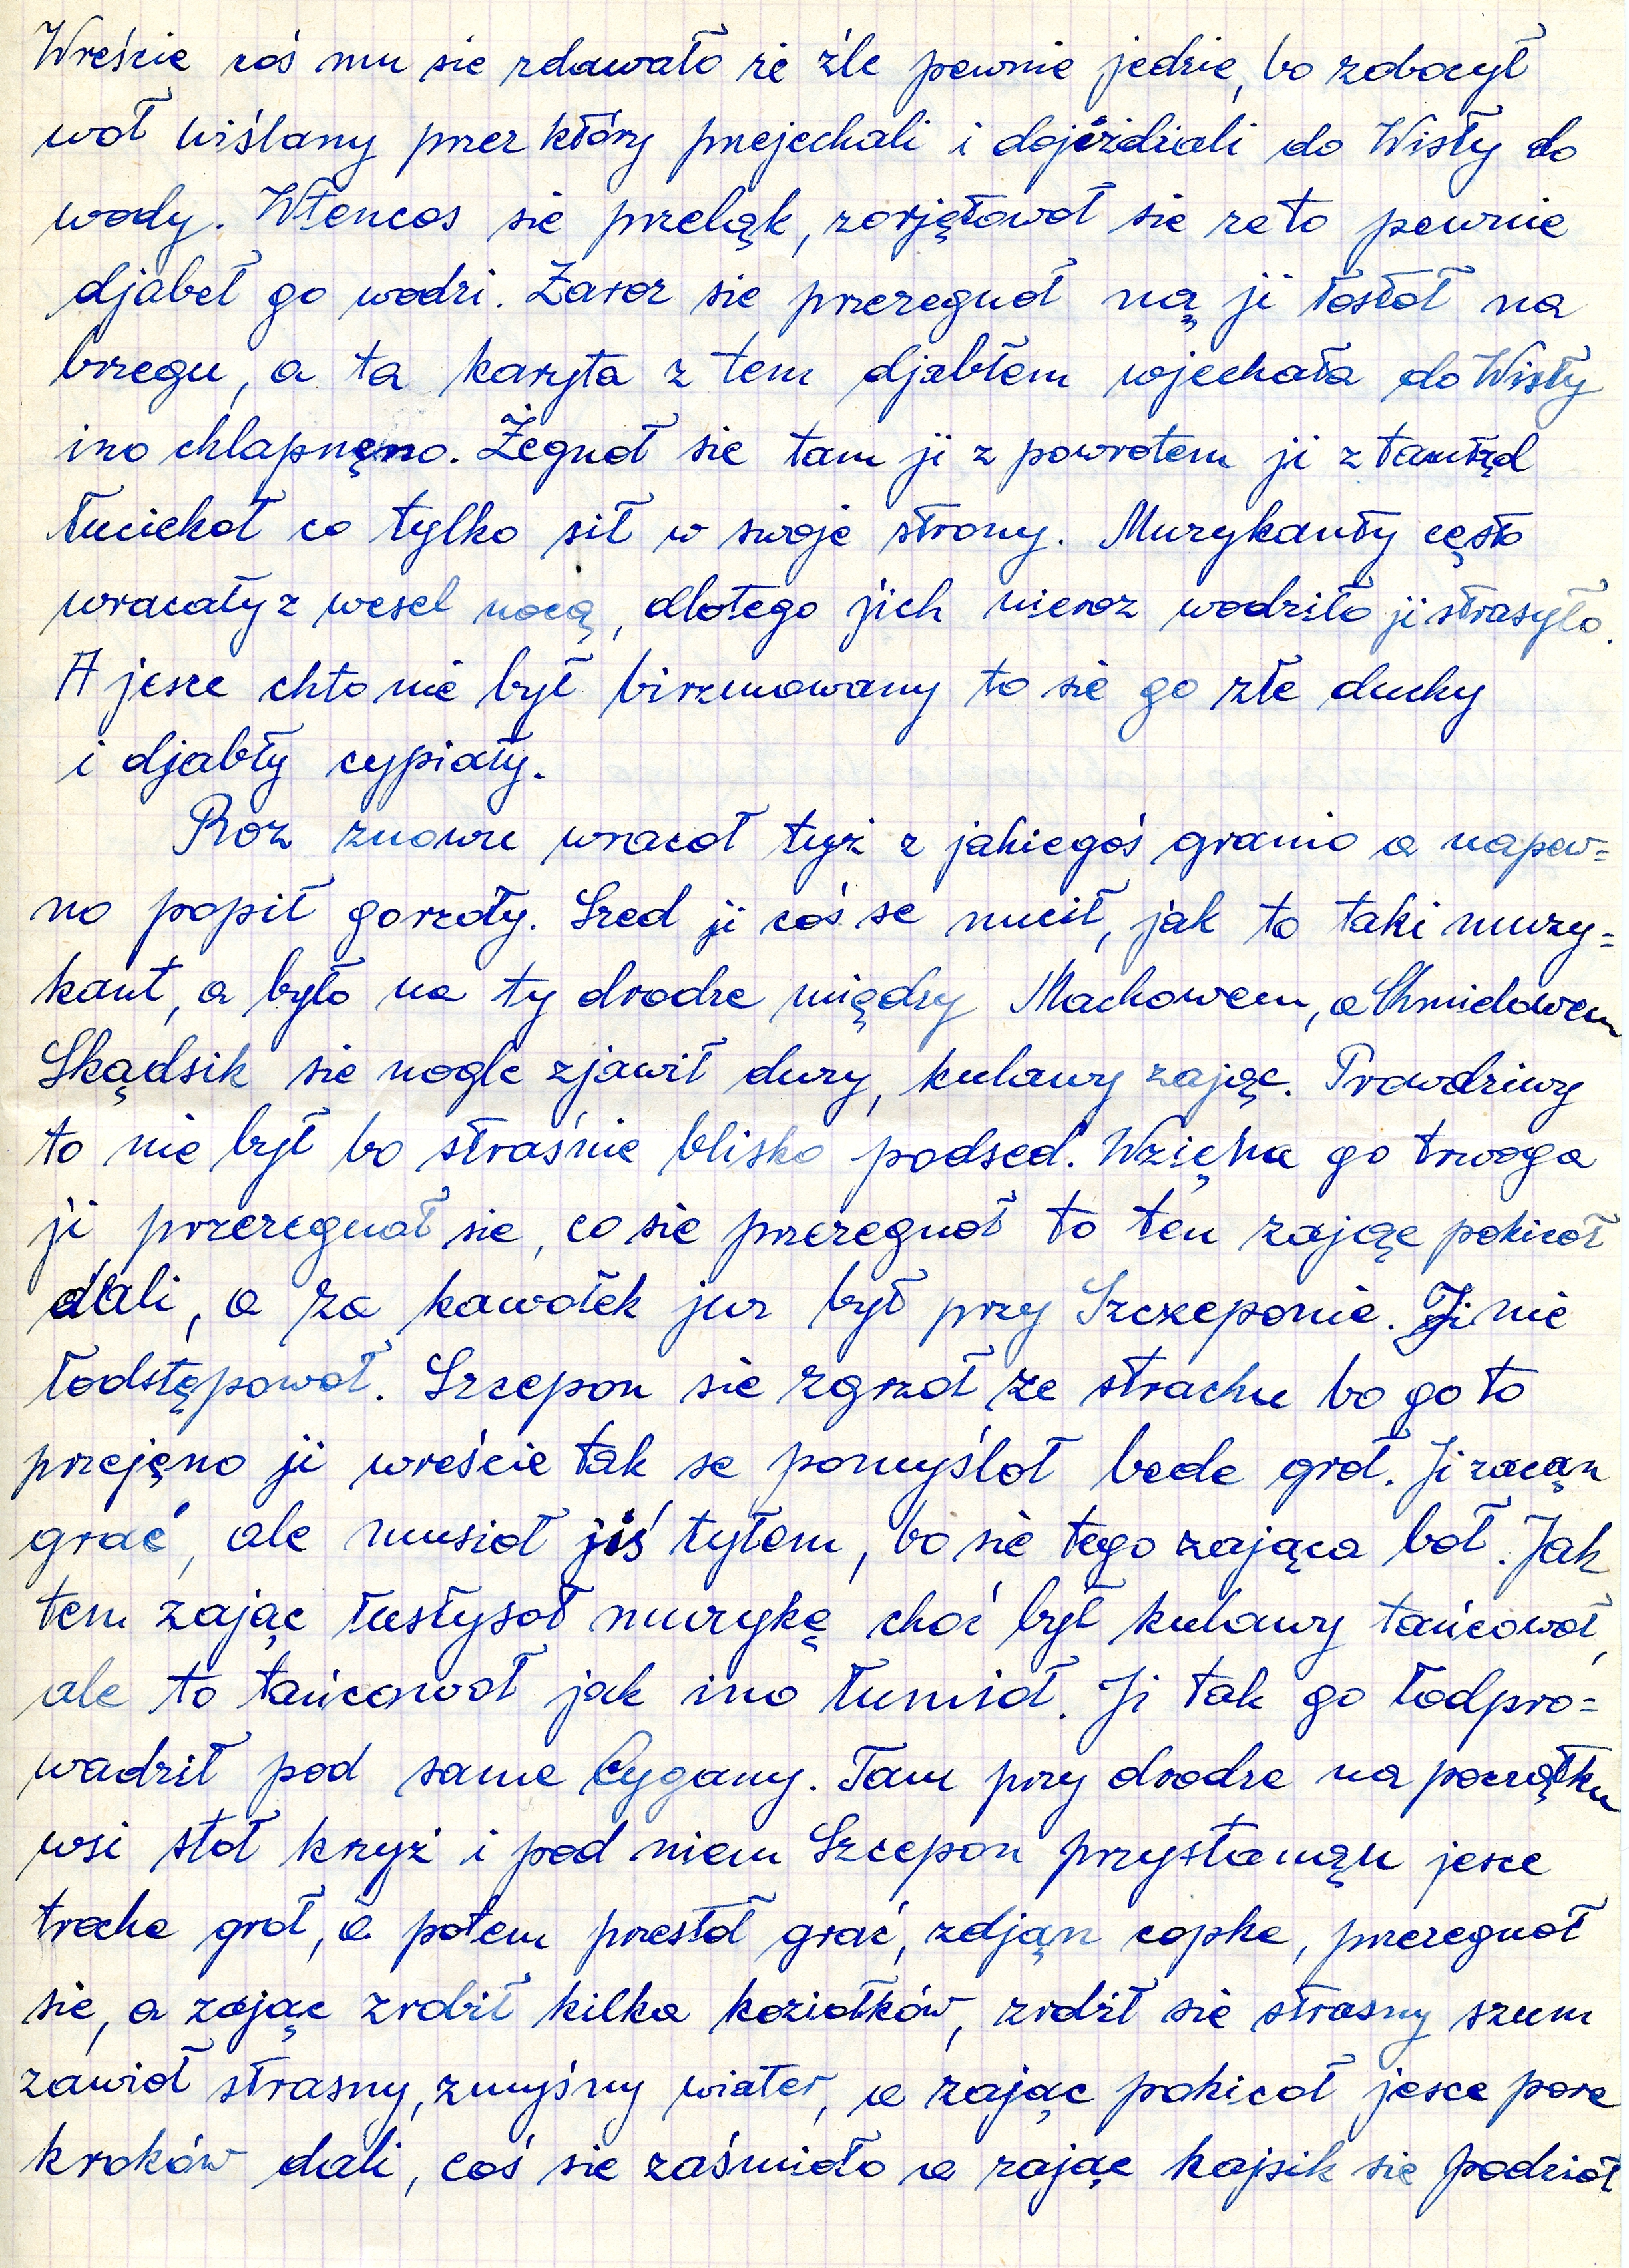 Wreście coś mu sie zdawało ze źle pewnie jedzie, bo zobocył
woł wiślany przez który przejechali i dojeżdżali do Wisły do
wody. Wtencos sie przeląk, zorjętowoł sie ze to pewnie
djabeł go wodzi. Zaroz sie przezegnoł ną ji łostoł na
brzegu, a ta karyta z tem djabłem wjechała do Wisły
ino chlapnęno. Żegnoł sie tam ji z powrotem ji ztamtąd
łuciekoł co tylko sił w swoje strony. Muzykanty cęsto
wracały z wesel nocą, dlotego jich nieroz wodziło ji strasyło.
A jesce chto nie był birzmowany to sie go złe duchy
i djabły cypiały.
Roz znowu wracoł tyż z jakiegoś granio a napew=
no popił gorzoły. Szed ji coś se nucił, jak to taki muzy=
kant, a było na ty drodze między Machowem, a Chmielowem
Skądsik sie nogle zjawił duzy, kulawy zając. Prowdziwy
to nie był bo straśnie blisko podsed. Wzięna go trwoga
ji przezegnoł sie, co sie przezegnoł to ten zając pokicoł
dali, a za kawołek juz był przy Szczeponie. Ji nie
łodstępowoł. Szcepon sie zgrzoł ze strachu bo go to
przejęno ji wreście tak se pomyśloł bede groł. Ji zacąn
grać, ale musioł jiś tyłem, bo sie tego zająca boł. Jak
tem zając łusłysoł muzykę choć był kulawy tańcowoł,
ale to tańcowoł jak ino łumioł. Ji tak go łodpro=
wadził pod same Cygany. Tam przy drodze na początku
wsi stoł krzyż i pod niem Szcepon przystanąn jesce
troche groł, a potem przestoł grać, zdjąn copke, przezegnoł
sie, a zając zrobił kilka koziołków, zrobił sie strasny szum
zawioł strasny, zmyśny wiater, a zając pokicoł jesce pore
kroków dali, coś sie zaśmioło a zając kajsik sie podzioł